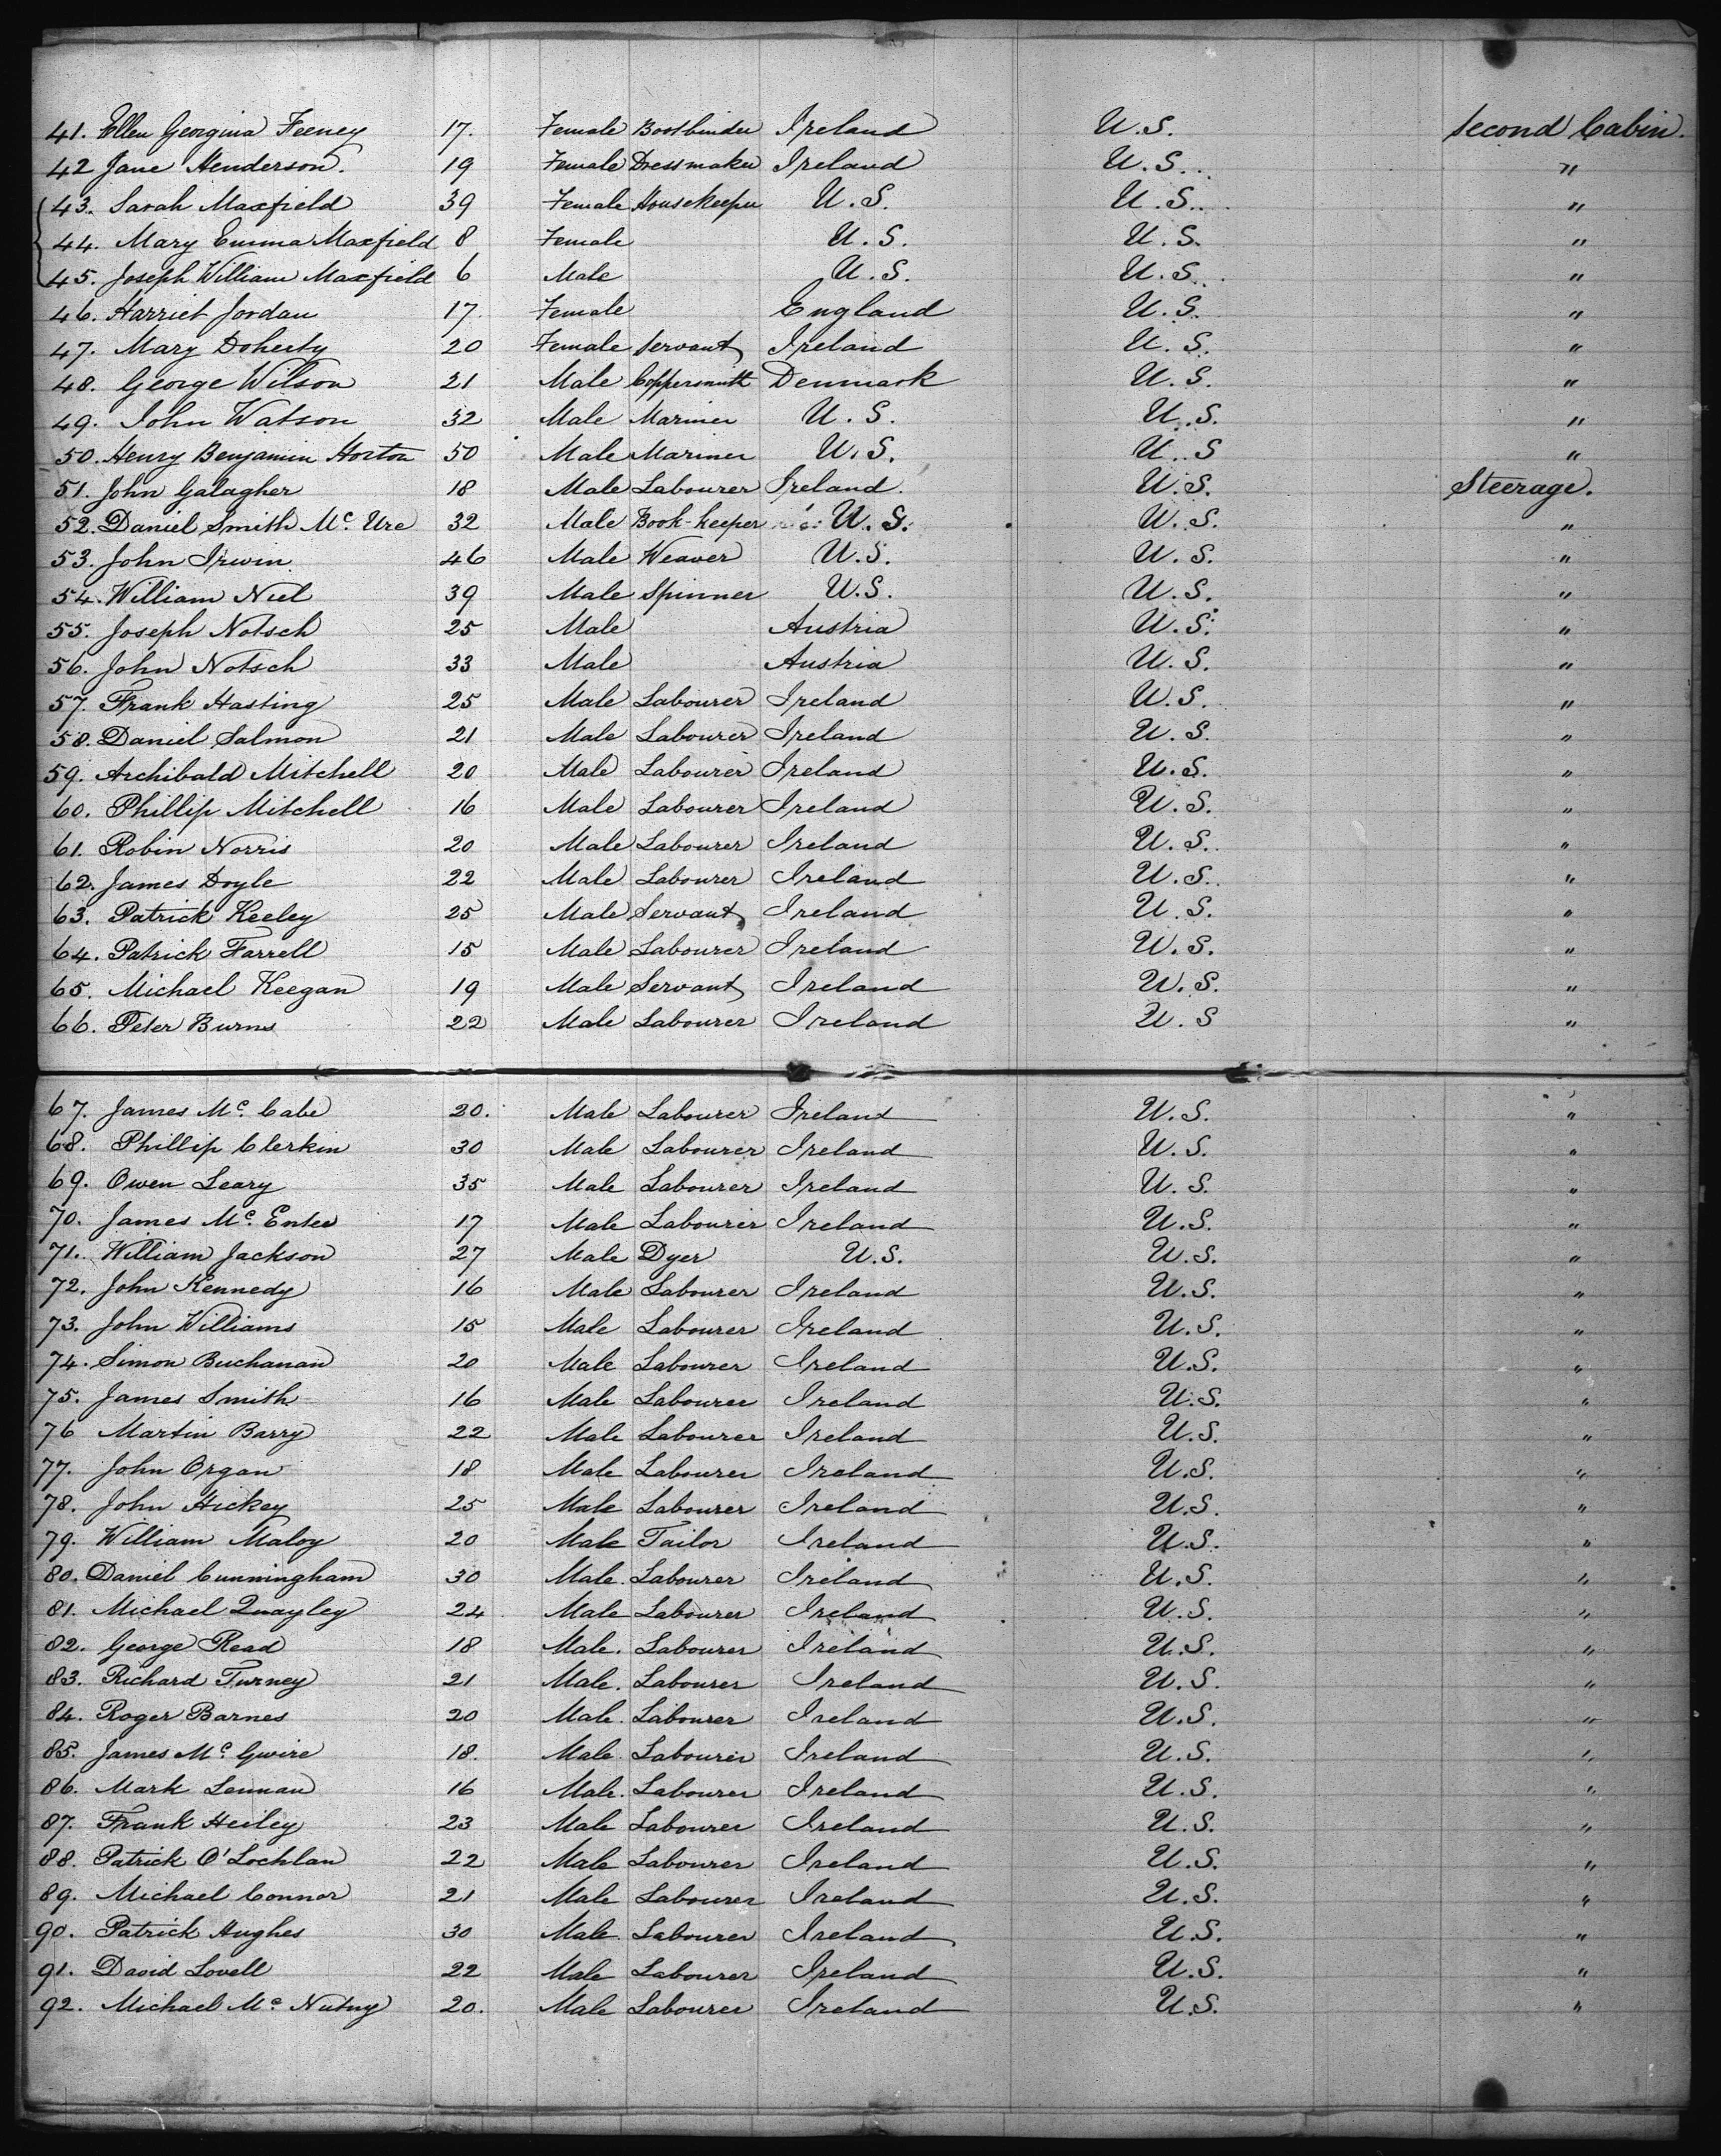 41. Ellen Georgina Feeney 17. Female Bootbinder Ireland U.S. Second Cabin.
42 Jane Henderson. 19 Female Dressmaker Ireland U.S. "
43. Sarah Maxfield 39 Female Housekeeper U.S. U.S. "
44. Mary Emma Maxfield 8 Female U.S. U.S. "
45. Joseph William Maxfield 6 Male U.S. U.S. "
46. Harriet Jordan 17. Female England U.S. "
47. Mary Doherty 20 Female Servant Ireland U.S. "
48. George Wilson 21 Male Coppersmith Denmark U.S. "
49. John Watson 32 Male Mariner U.S. U.S. "
50. Henry Benjamin Horton 50 Male Mariner U.S. U.S "
51. John Galagher 18 Male Labourer Ireland. U.S. Steerage.
52. Daniel Smith Mc. Ure 32 Male Book-keeper U.S. U.S. "
53. John Irwin 46 Male Weaver U.S. U.S. "
54. William Niel 39 Male Spinner U.S. U.S. "
55. Joseph Notsch 25 Male Austria U.S. "
56. John Notsch 33 Male Austria U.S. "
57. Frank Hasting 25 Male Labourer Ireland U.S. "
58. Daniel Salmon 21 Male Labourer Ireland U.S. "
59. Archibald Mitchell 20 Male Labourer Ireland U.S. "
60. Phillip Mitchell 16 Male Labourer Ireland U.S. "
61. Robin Norris 20 Male Labourer Ireland U.S. "
62. James Doyle 22 Male Labourer Ireland U.S. "
63. Patrick Keeley 25 Male Servant Ireland U.S. "
64. Patrick Farrell 15 Male Labourer Ireland U.S. "
65. Michael Keegan 19 Male Servant Ireland U.S. "
66. Peter Burns 22 Male Labourer Ireland U.S "
67. James Mc. Cabe 20. Male Labourer Ireland U.S. "
68. Phillip Clerkin 30 Male Labourer Ireland U.S. "
69. Owen Leary 35 Male Labourer Ireland U.S. "
70. James Mc. Entee 17 Male Labourer Ireland U.S. "
71. William Jackson 27 Male Dyer U.S. U.S. "
72. John Kennedy 16 Male Labourer Ireland U.S. "
73. John Williams 15 Male Labourer Ireland U.S. "
74. Simon Buchanan 20 Male Labourer Ireland U.S. "
75. James Smith 16 Male Labourer Ireland U.S. "
76 Martin Barry 22 Male Labourer Ireland U.S. "
77. John Organ 18 Male Labourer Ireland U.S. "
78. John Hickey 25 Male Labourer Ireland U.S. "
79. William Maloy 20 Male Tailor Ireland U.S. "
80. Daniel Cunningham 30 Male. Labourer Ireland U.S. "
81. Michael Quayley 24 Male Labourer Ireland U.S. "
82. George Read 18 Male. Labourer Ireland U.S. "
83. Richard Turney 21 Male. Labourer Ireland U.S. "
84. Roger Barnes 20 Male. Labourer Ireland U.S. "
85. James Mc. Gwire 18. Male. Labourer Ireland U.S. "
86. Mark Lennan 16 Male. Labourer Ireland U.S. "
87. Frank Heiley 23 Male Labourer Ireland U.S. "
88. Patrick O'Lochlan 22 Male Labourer Ireland U.S. "
89. Michael Connor 21 Male Labourer Ireland U.S. "
90. Patrick Hughes 30 Male. Labourer Ireland U.S. "
91. David Lovell 22 Male Labourer Ireland U.S. "
92. Michael Mc. 20. Male Labourer Ireland U.S. "